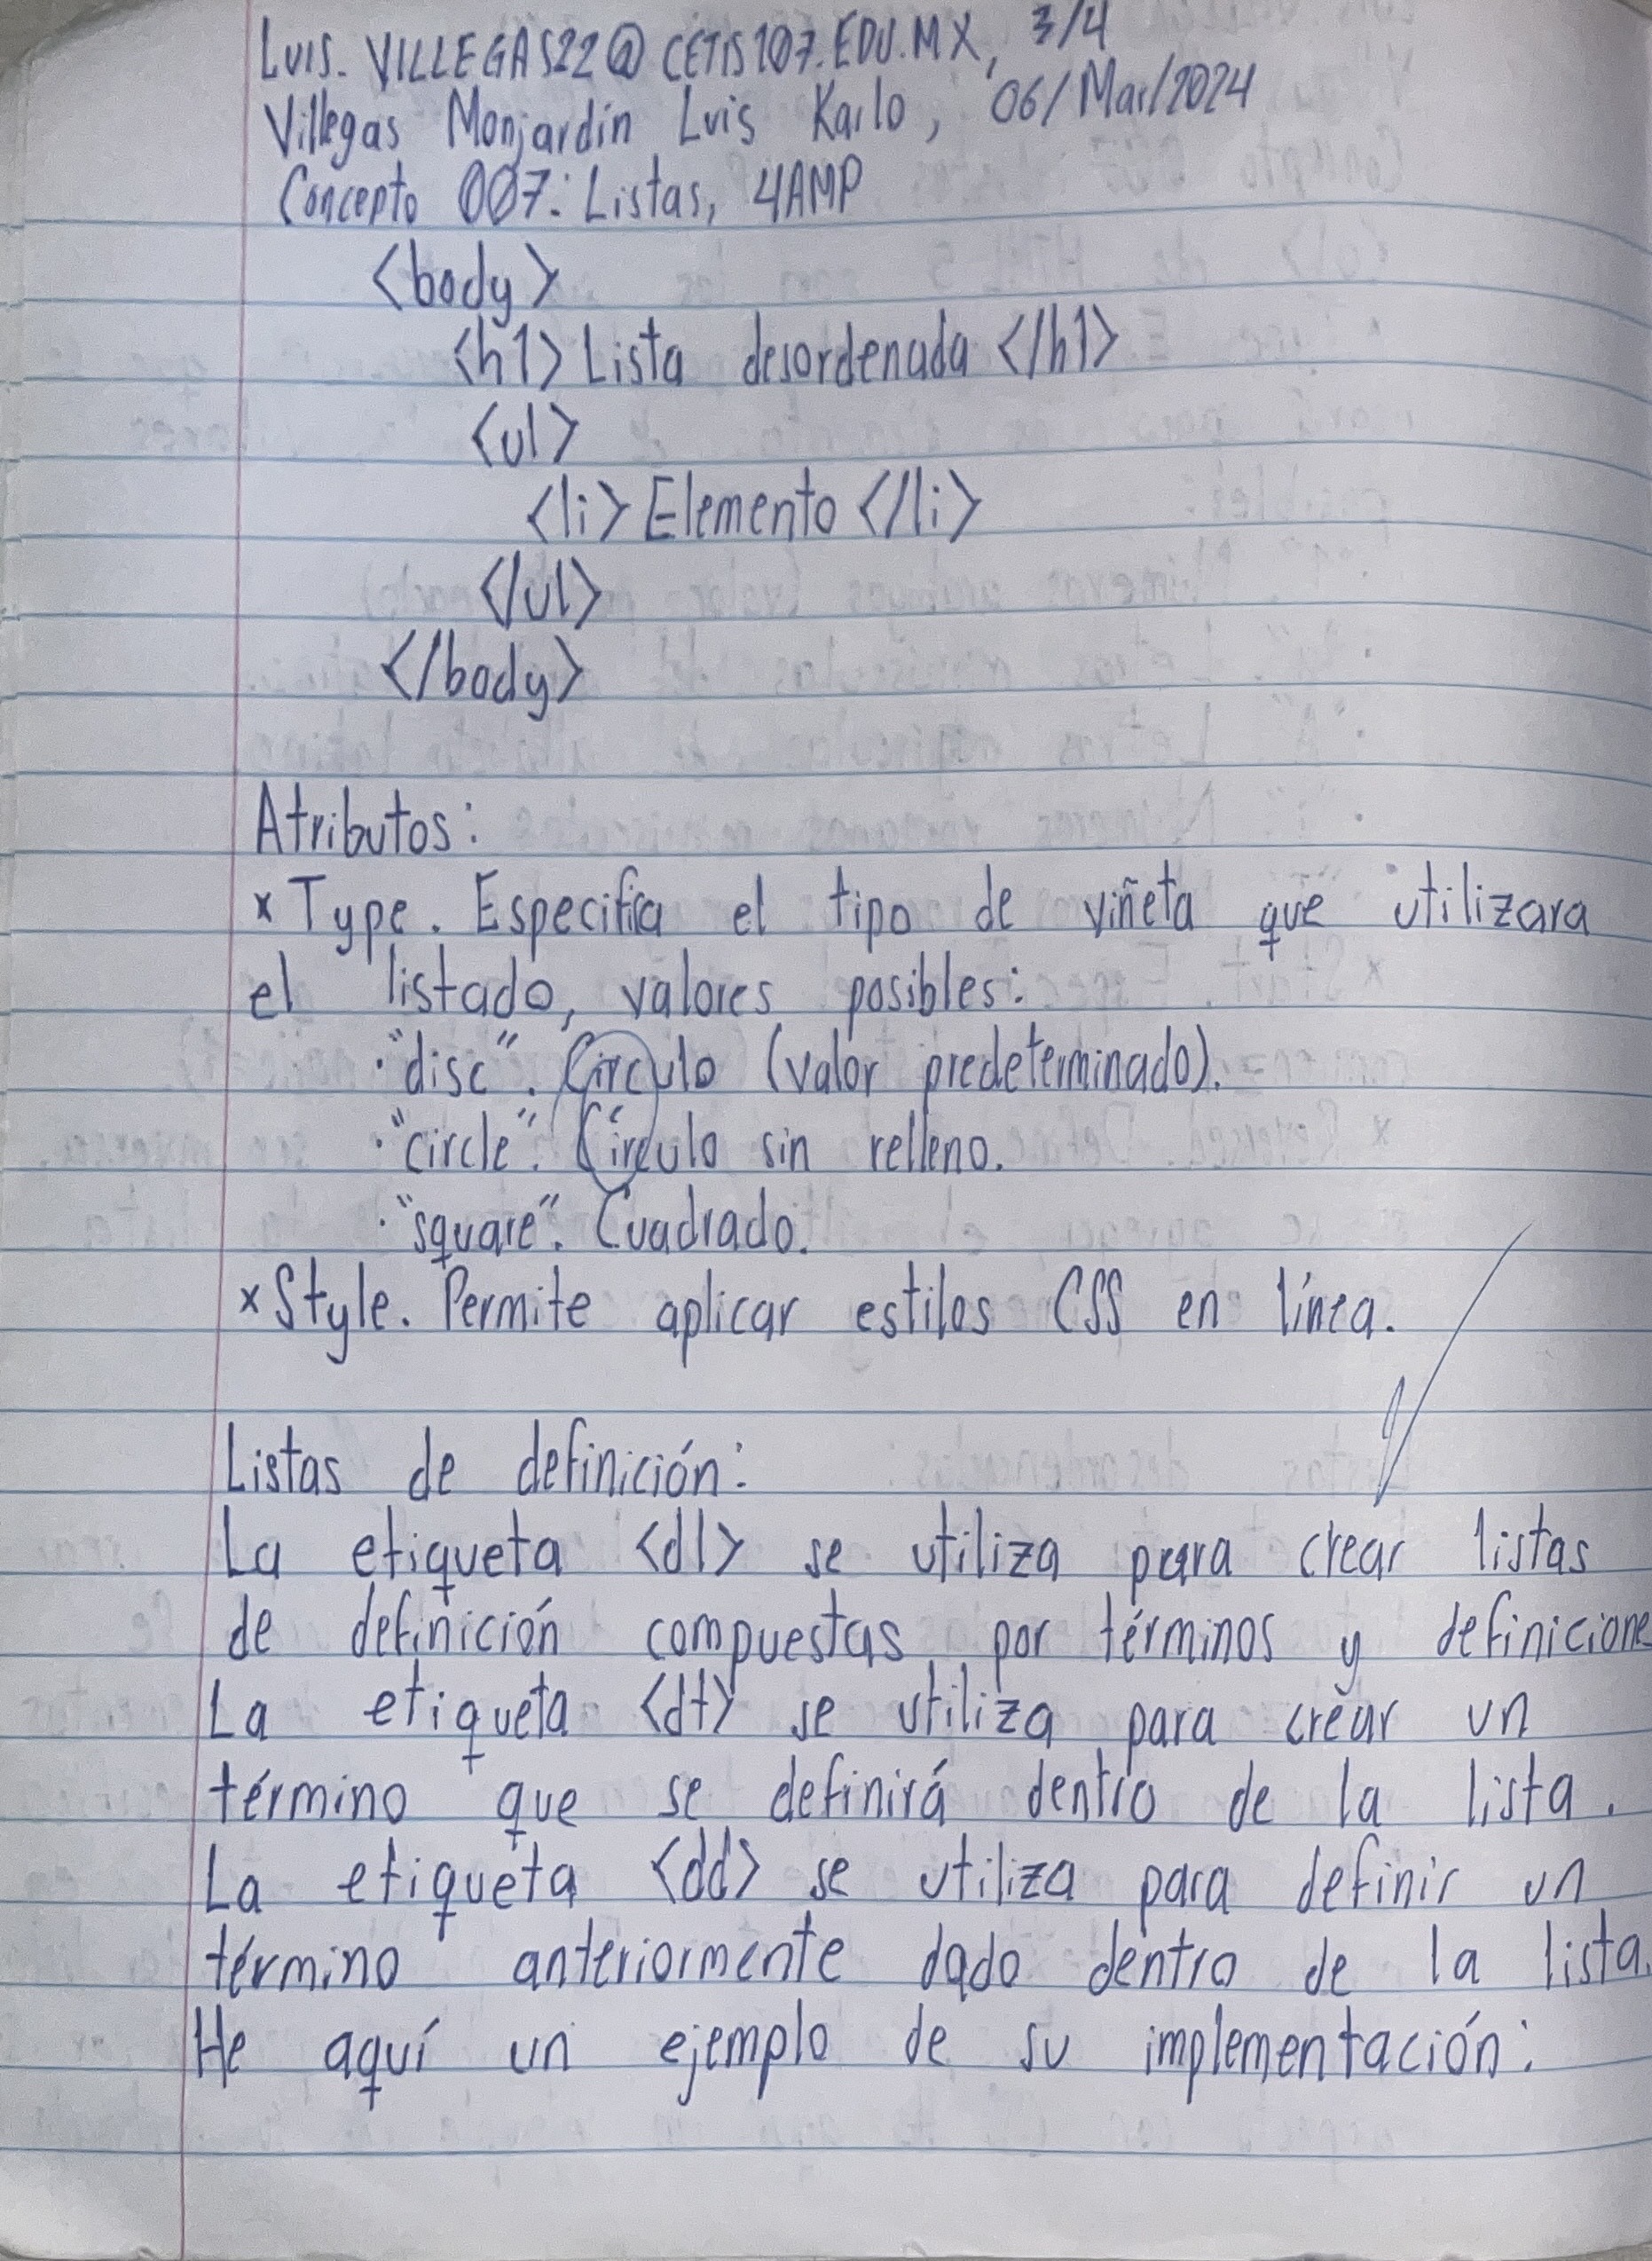 LUIS.VILLEGAS22@CETIS107.EDU.MX, 3/4
Villegas Monjardín Luis Karlo, 06/Mar/2024
Concepto 007: Listas, 4AMP
<body>
<h1>Lista desordenada</h1>
<ul>
<li>Elemento</li>
</ul>
</body>
Atributos:
x Type. Especifica el tipo de viñeta que utilizara
el listado, valores posibles:
· "disc". Círculo (valor predeterminado).
· "circle". Círculo sin relleno.
· "square". Cuadrado.
x Style. Permite aplicar estilos CSS en línea.
Listas de definición:
La etiqueta <dl> se utiliza para crear listas
de definición compuestas por términos y definicione
La etiqueta <dt> se utiliza para crear un
término que se definirá dentro de la lista.
La etiqueta <dd> se utiliza para definir un
término anteriormente dado dentro de la lista.
He aquí un ejemplo de su implementación: